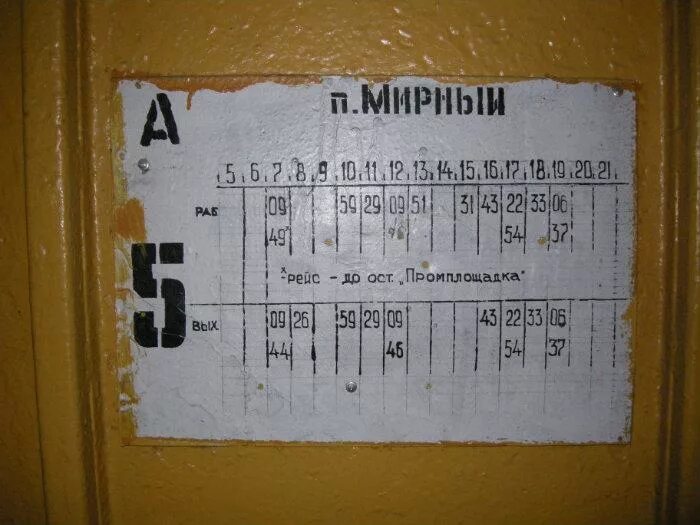 А
п.МИРНЫЙ
5 6 7 8 9 10 11 12 13 14 15 16 17 18 19 20 21
РАБ 09 59 29 09 51 31 43 22 33 06
49ˣ 54 37
5
ˣ-рейс - до ост. „Промплощадка"
ВЫХ 09 26 59 29 09 43 22 33 06
44 46 54 37